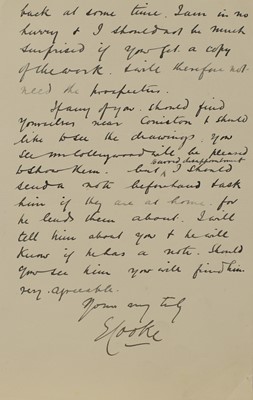 back at some time. I am in no
hurry & I should not be much
surprised if you get a copy
of the work. I will therefore not
need the prospectus.
If any of you should find
yourselves near Coniston & should
like to see the drawings, you
see Mr Collingwood will be pleased
to show them. but, I should
avoid disappointment
send a note beforehand back
him if they are at home. for
he lends them about. I will
tell him about you & he will
know if he has a note. Should
you see him you will find him
very agreeable.
Yours very truly
E Cooke